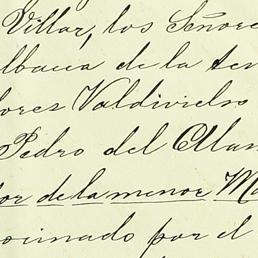 Villar, los Señore
lbacea de la ter
ores Valdivielso
Pedro del Olla
or de la menor Ma
ocinado por el